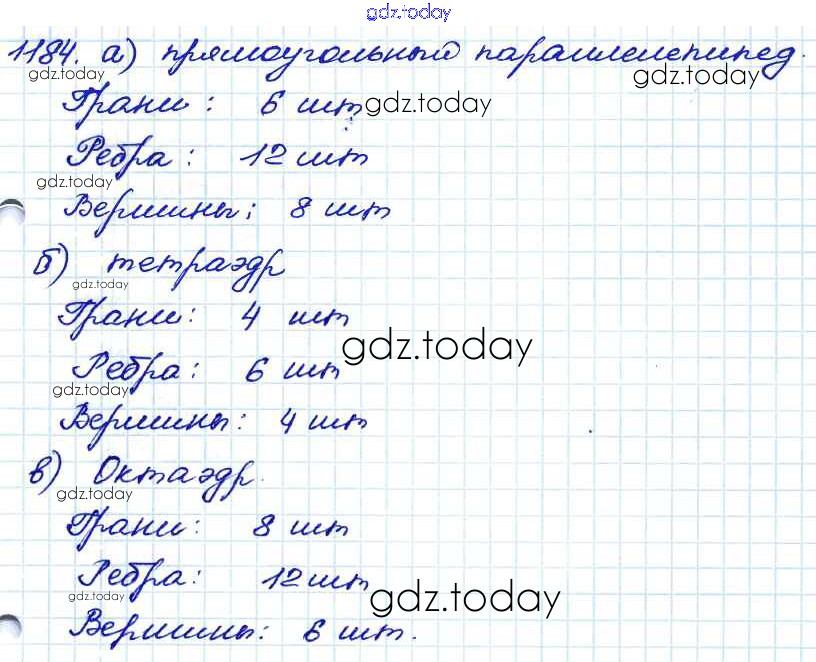 gdz.today
1184. а) прямоугольный параллелепипед.
gdz.today gdz.today
Грани: 6 шт gdz.today
Ребра: 12 шт
gdz.today
Вершины: 8 шт
б) тетраэдр
gdz.today
Грани: 4 шт
gdz.today
Ребра: 6 шт
gdz.today
Вершины: 4 шт
в) Октаэдр.
gdz.today
Грани: 8 шт
Ребра: 12 шт
gdz.today gdz.today
Вершины: 6 шт.